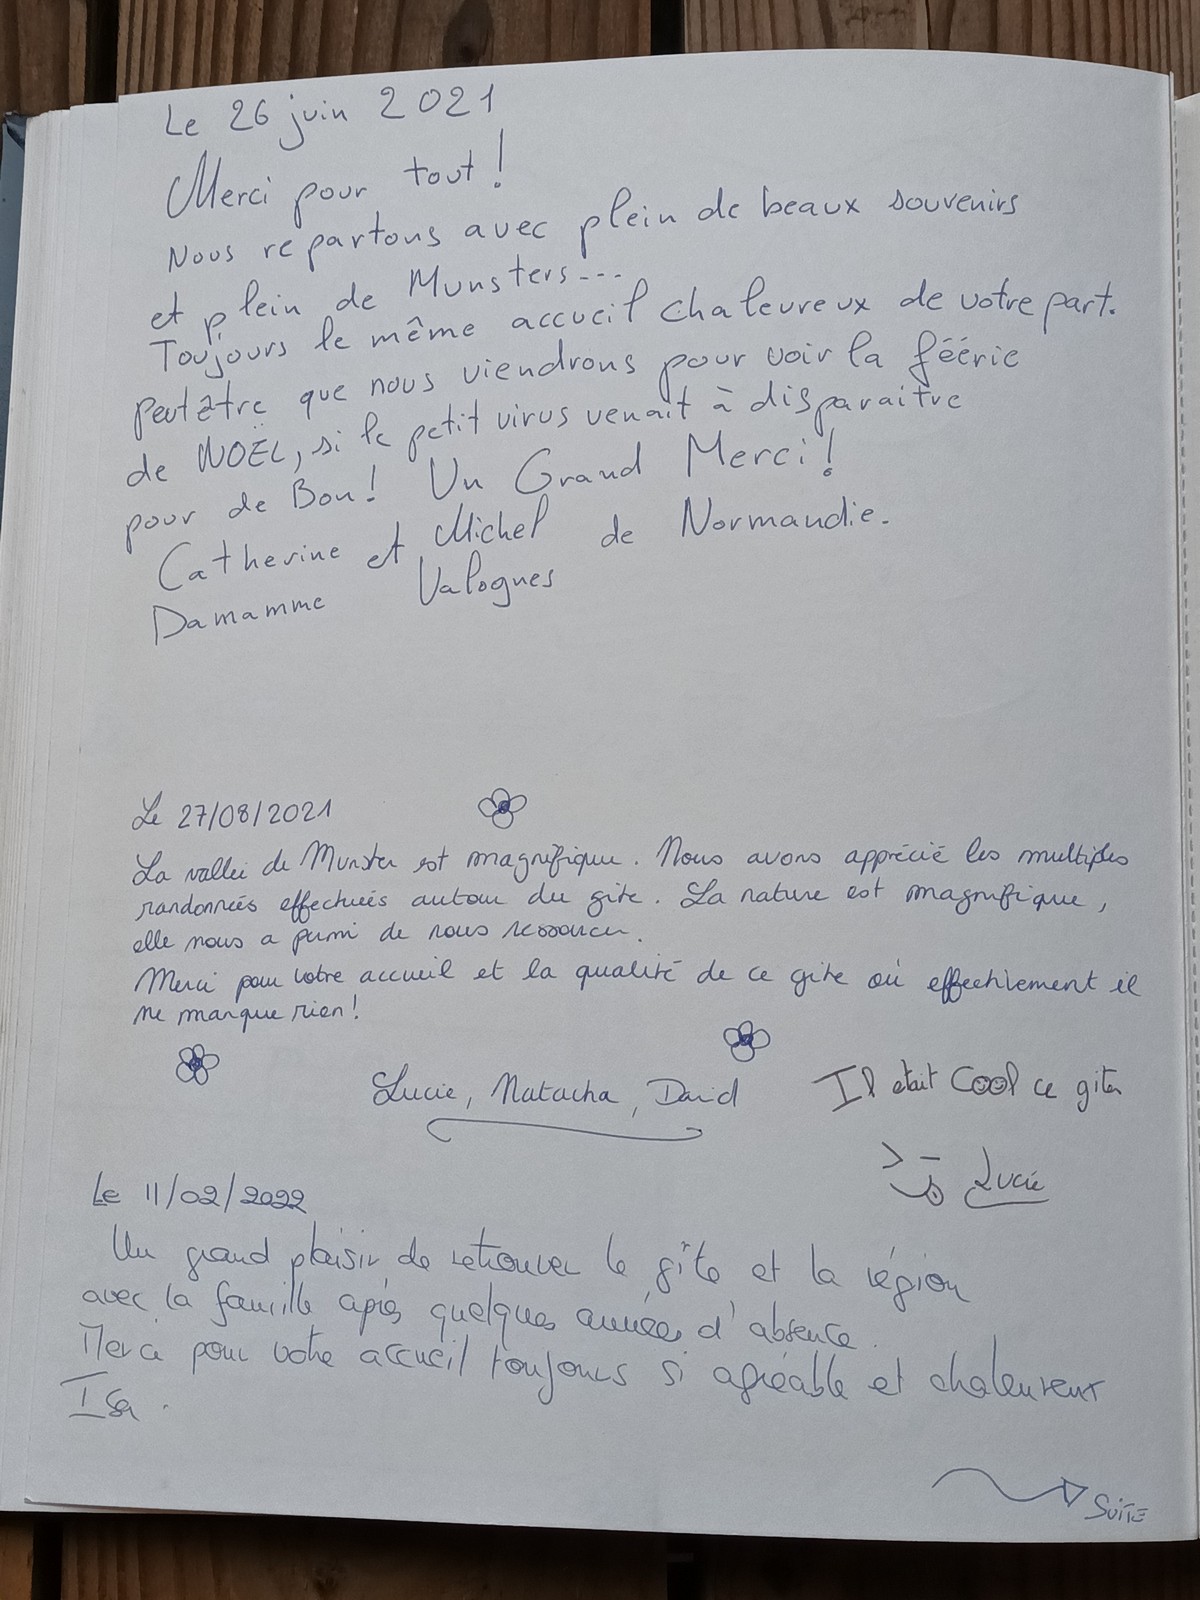 Le 26 juin 2021
Merci pour tout !
Nous repartons avec plein de beaux souvenirs
et plein de Munsters...
Toujours le même accueil chaleureux de votre part.
Peut être que nous viendrons pour voir la féérie
de NOËL, si le petit virus venait à disparaitre
pour de Bon ! Un Grand Merci !
Catherine et Michel de Normandie.
Damamme Valognes
Le 27/08/2021
La vallée de Munster est magnifique. Nous avons apprécié les multiples
randonnées effectuées autour du gite. La nature est magnifique,
elle nous a permi de nous ressourcer.
Merci pour votre accueil et la qualité de ce gite où effectivement il
ne manque rien !
Lucie, Natacha, David
Il était Cool ce gite
Lucie
Le 11/02/2022
Un grand plaisir de retrouver le gîte et la région
avec la famille après quelques années d'absence.
Merci pour votre accueil toujours si agréable et chaleureux
Isa.
SUITE